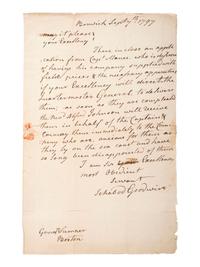 Berwick Sept 7th 1797
may it please
your Excellency
There inclose an appli
cation from Capt Mane who is desirous
of having his company supported with
field pieces & the necessary apparatus
if your Excellency will direct the
quartermaster General to deliver
them, as soon as they are compleated
Johnson will receive
them in behalf of the Captain &
convey them immediately to the Com
pany who are anxious for them as
they ly on the sea coast and have
so long been disappointed of them
I am Sir Excellency
most Obedient
Servant
Ichabod Goodwin
Genl Sumner
Boston